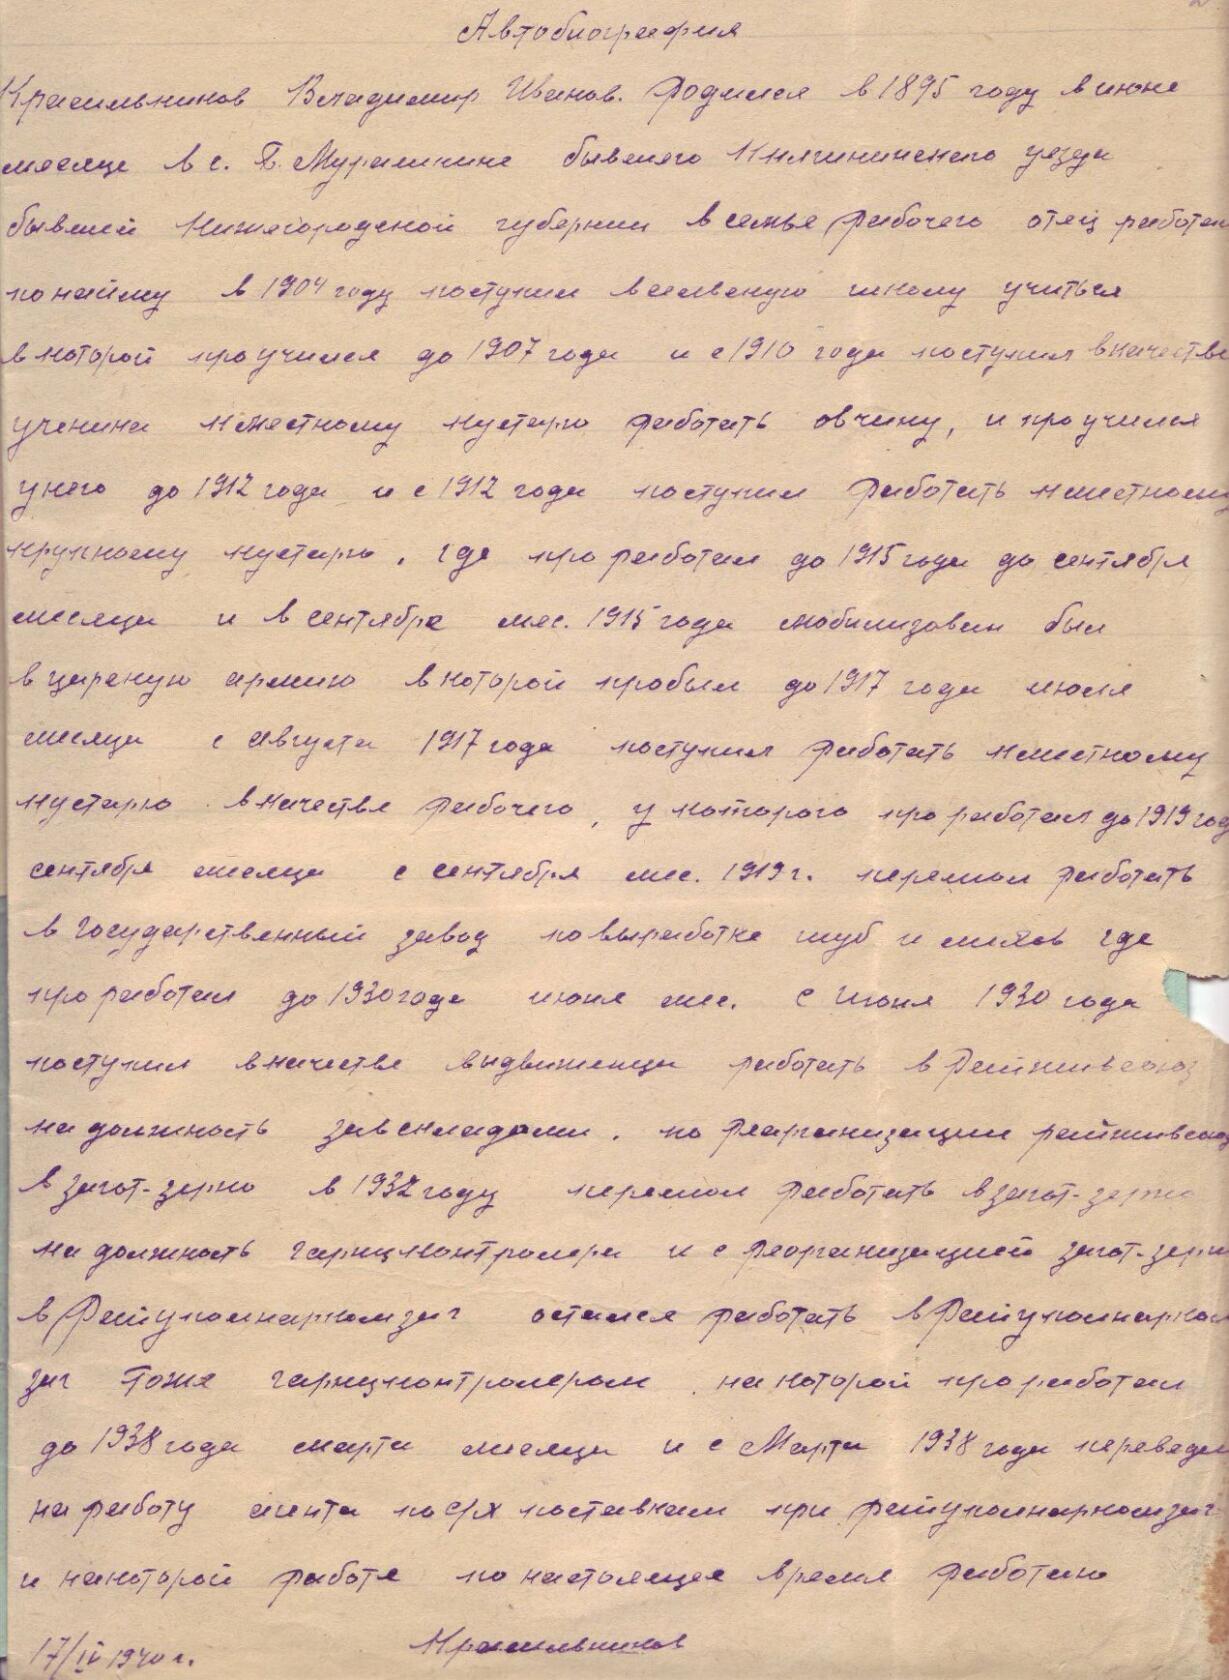 Автобиография
Красильников Владимир Иванов. Родился в 1895 году в июне
месяце в с. Б. Мурашкине бывшего Княгининского уезда
бывшей Нижегородской губернии в семье рабочего отец работал
по найму в 1904 году поступил в сельскую школу учиться
в которой проучился до 1907 года и с 1910 года поступил в качестве
ученика к местному кустарю работать овчину, и проучился
у него до 1912 года и с 1912 года поступил работать к местному
крупному кустарю, где проработал до 1915 года до сентября
месяца и в сентябре мес. 1915 года мобилизован был
в царскую армию в которой пробыл до 1917 года июля
месяца с августа 1917 года поступил работать к местному
кустарю в качестве рабочего, у которого проработал до 1919 год
сентября месяца с сентября мес. 1919 г. перешол работать
в государственный завод по выработке шуб и мехов где
проработал до 1930 года июня мес. С Июня 1930 года
поступил в качестве выдвиженца работать в Райживсоюз
на должность завскладами. по Реарганизации райживсоюз
в загот-зерно в 1932 году перешол работать в загот-зерно
на должность гарнцконтролера и с реорганизацией загот-зерно
в Райупколнаркомзаг остался работать в Райуполнарком
заг тоже гарнцконтролером, на которой проработал
до 1938 года марта месяца и с Марта 1938 года переведен
на работу агента по с/х поставкам при райуполнаркомзаг
и на которой работе по настоящее время работаю
17/IV 1940 г. Красильников